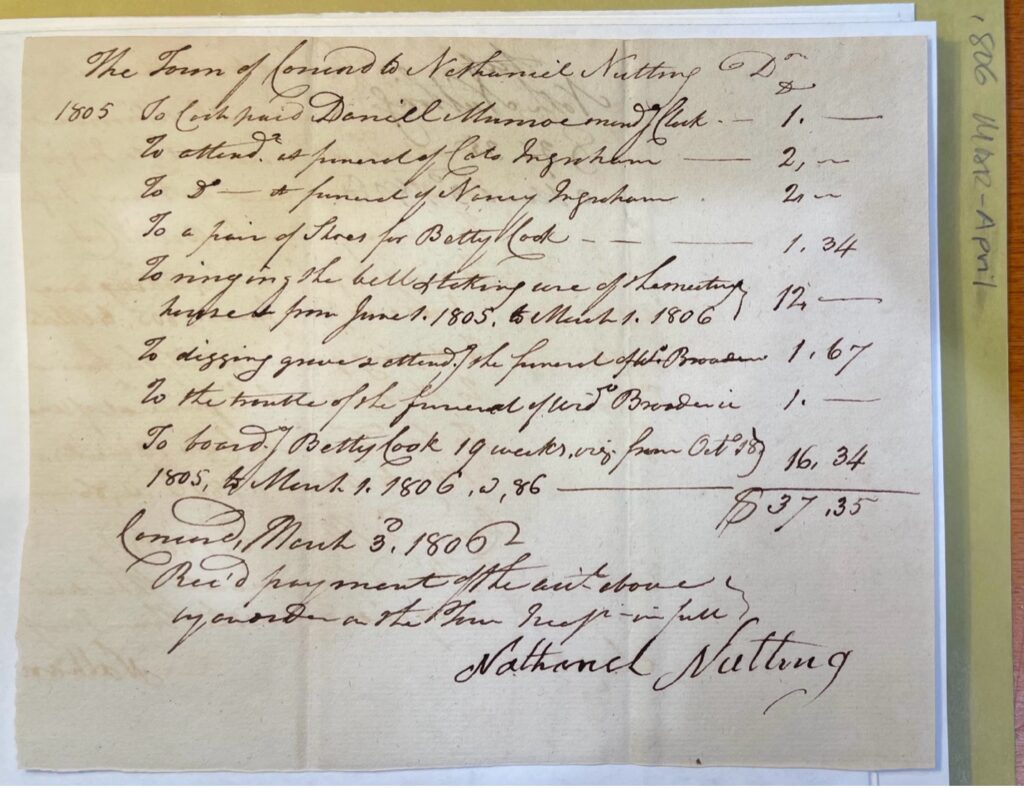 The Town of Concord to Nathaniel Nutting Dr
$
1805 To Cash paid Daniell Munroe mendg Clock. — 1. —
To attendce at funeral of Cato Ingraham — 2, —
To Do — at funeral of Nancy Ingraham 2 —
To a pair of Shoes for Betty Cook — — — 1. 34
To ringing the bell & taking care of the meeting
house from June 1. 1805, to March 1. 1806 } 12 —
To digging grave & attendg the funeral of 1. 67
To the trouble of the funeral of wido 1. —
To boardg Betty Cook 19 weeks, viz, from Octo 18
1805, to March 1. 1806, @, 86 — 16. 34
$ 37.35
Concord, March 3. 1806
Rec'd payment of the acct above
by an order on the Town in full
Nathaniel Nutting
1806 14 Mar-April